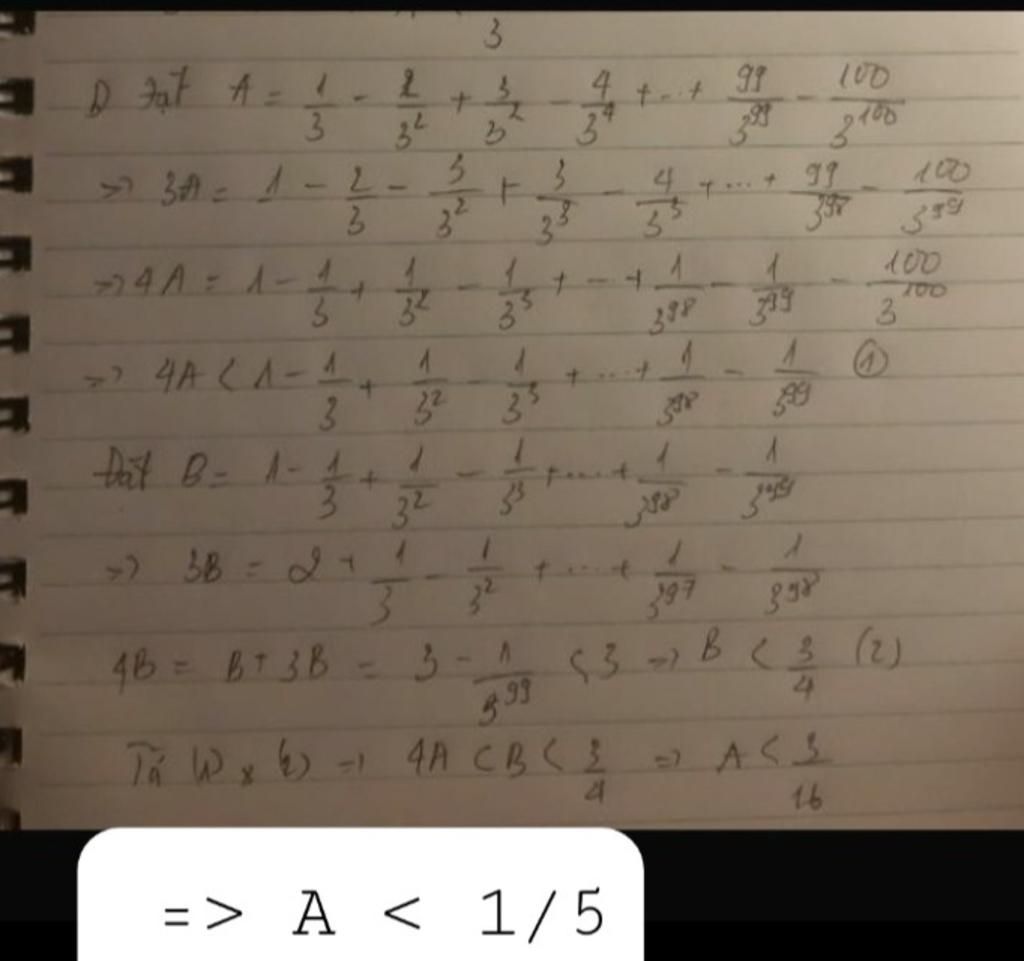 3
D Đặt A = 1/3 - 2/3^2 + 3/3^2 - 4/3^4 + ... + 99/3^99 - 100/3^100
=> 3A = 1 - 2/3 - 3/3^2 + 3/3^3 - 4/3^3 + ... + 99/3^98 - 100/3^99
=> 4A = 1 - 1/3 + 1/3^2 - 1/3^3 + ... + 1/3^98 - 1/3^99 - 100/3^100
=> 4A < 1 - 1/3 + 1/3^2 - 1/3^3 + ... + 1/3^98 - 1/3^99 ①
Đặt B = 1 - 1/3 + 1/3^2 - 1/3^3 + ... + 1/3^98 - 1/3^99
=> 3B = 2 + 1/3 - 1/3^2 + ... + 1/3^97 - 1/3^98
4B = B + 3B = 3 - 1/3^99 < 3 => B < 3/4 (2)
Từ (1) & (2) => 4A < B < 3/4 => A < 3/16
=> A < 1/5